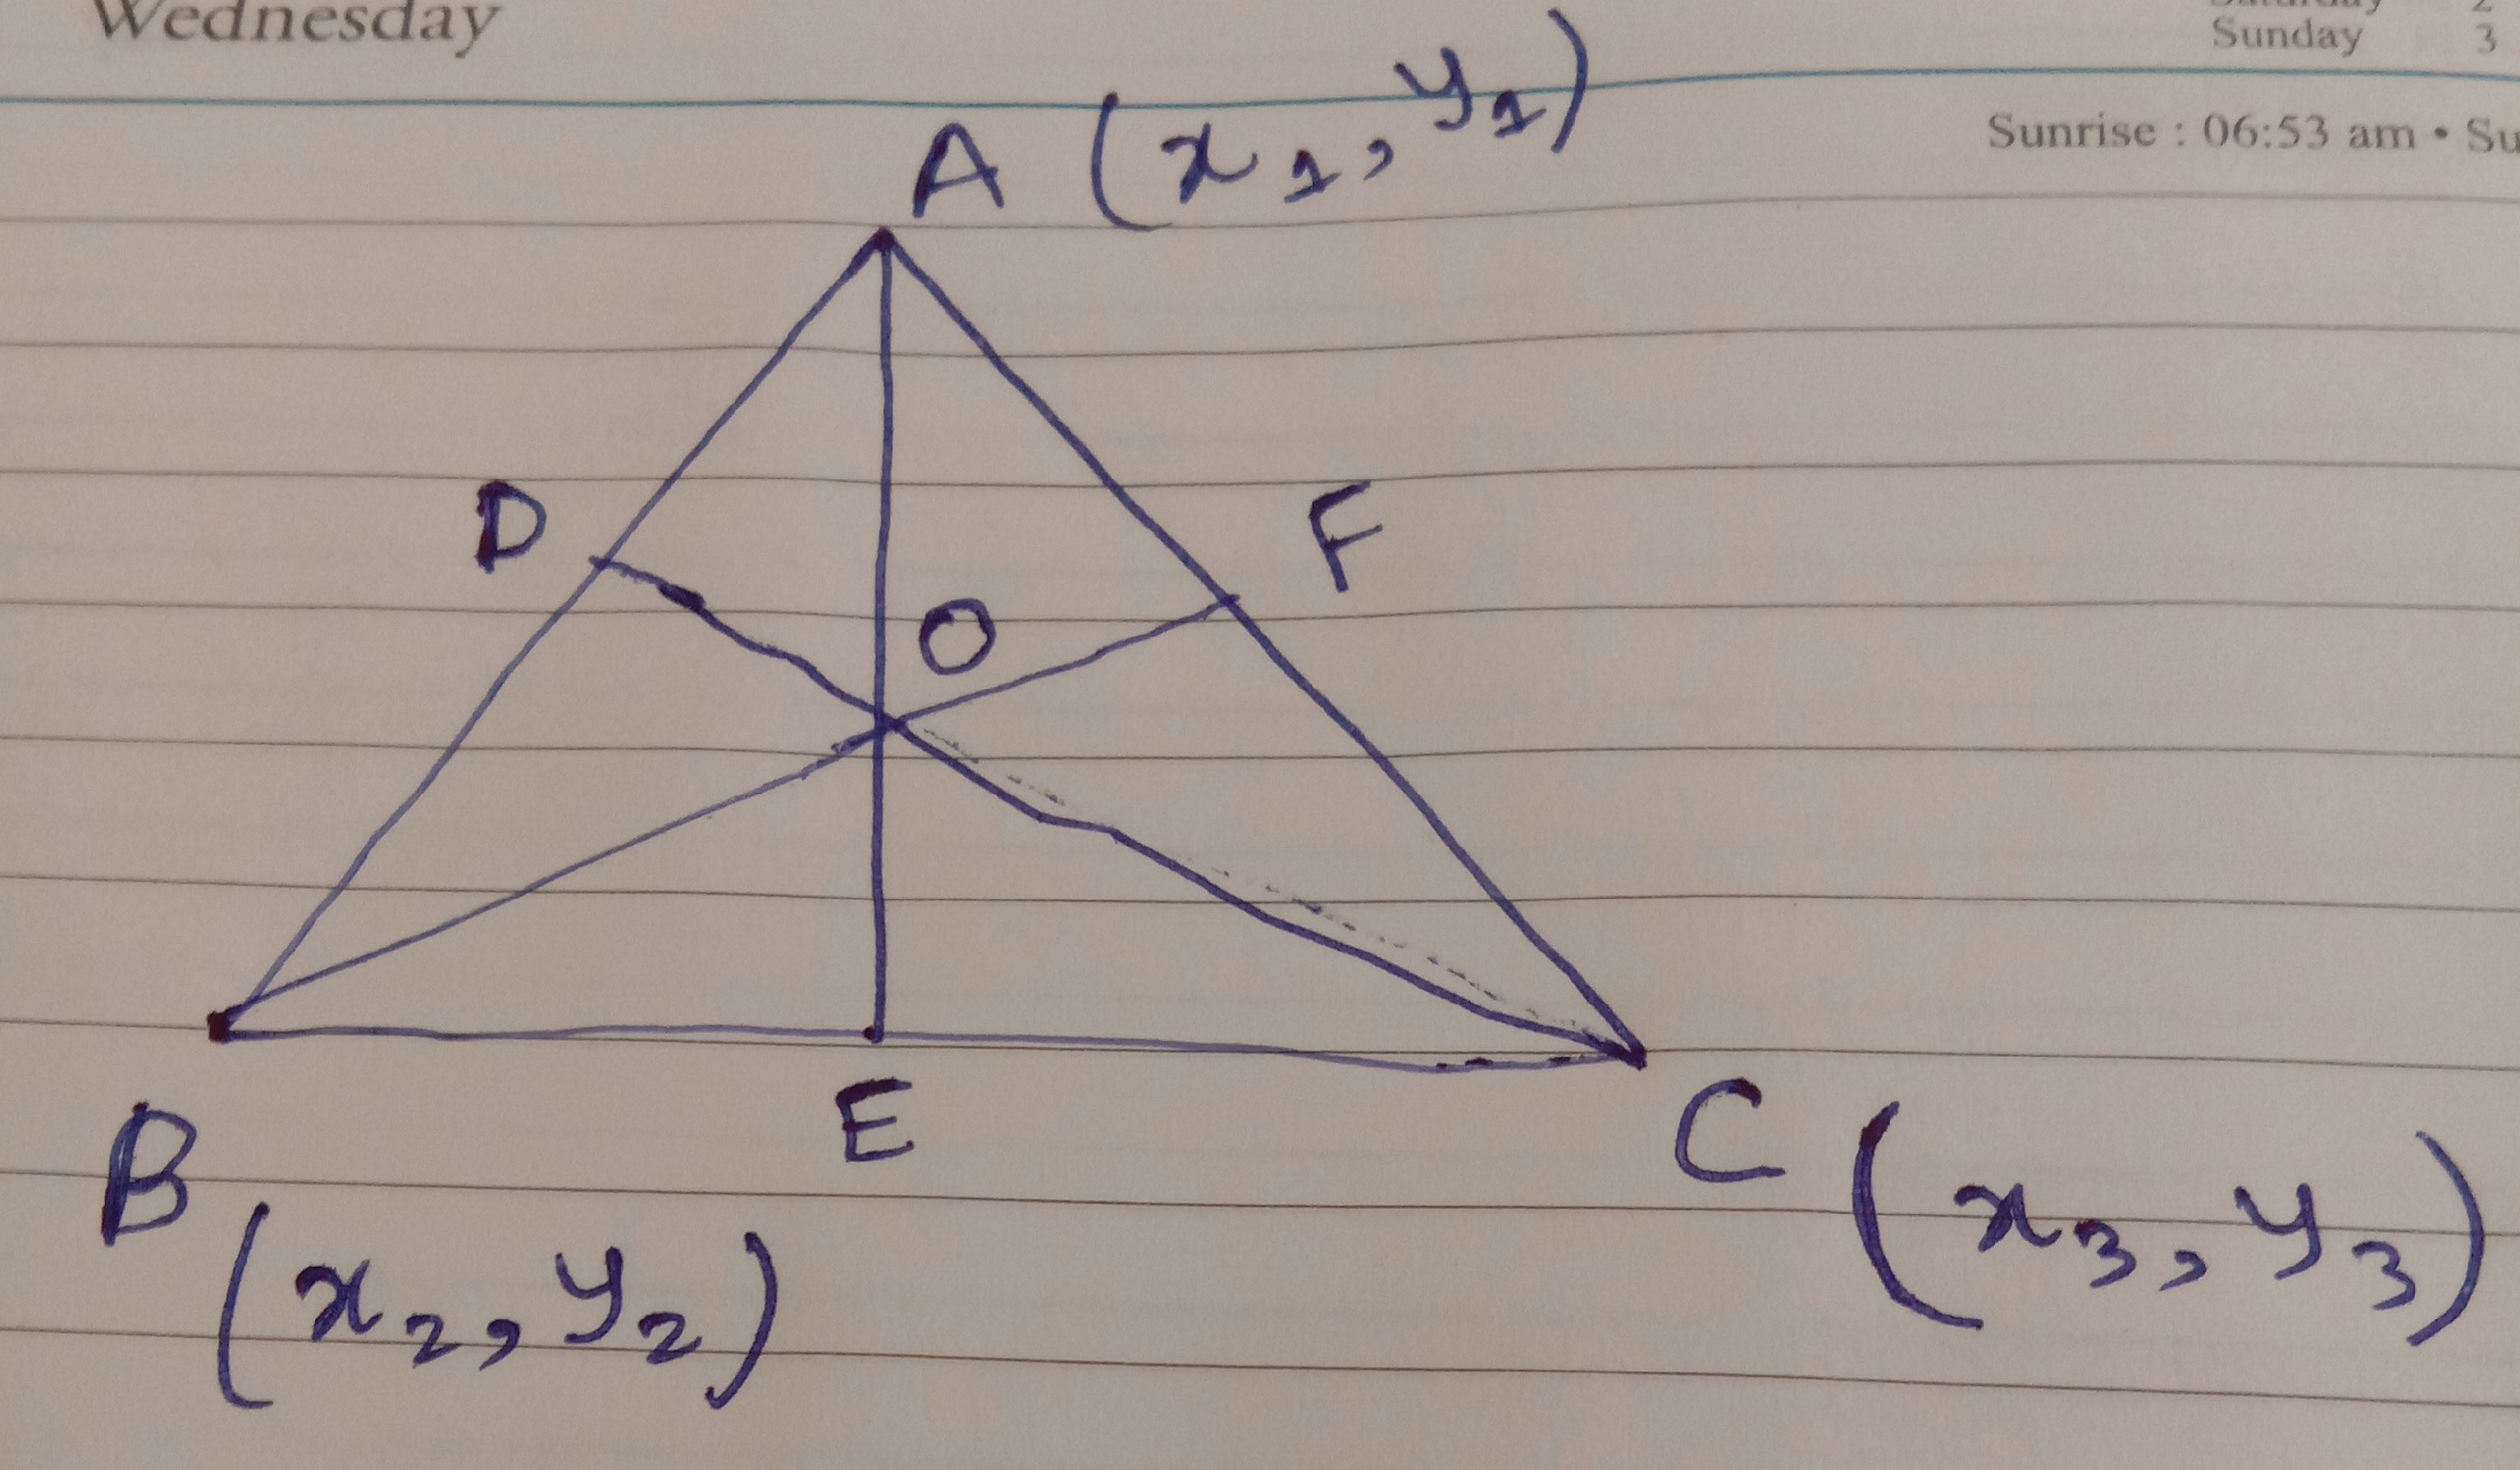 Wednesday
Sunday 3
Sunrise : 06:53 am •
A (x₁, y₁)
D
F
O
B
E
C (x₃, y₃)
(x₂, y₂)